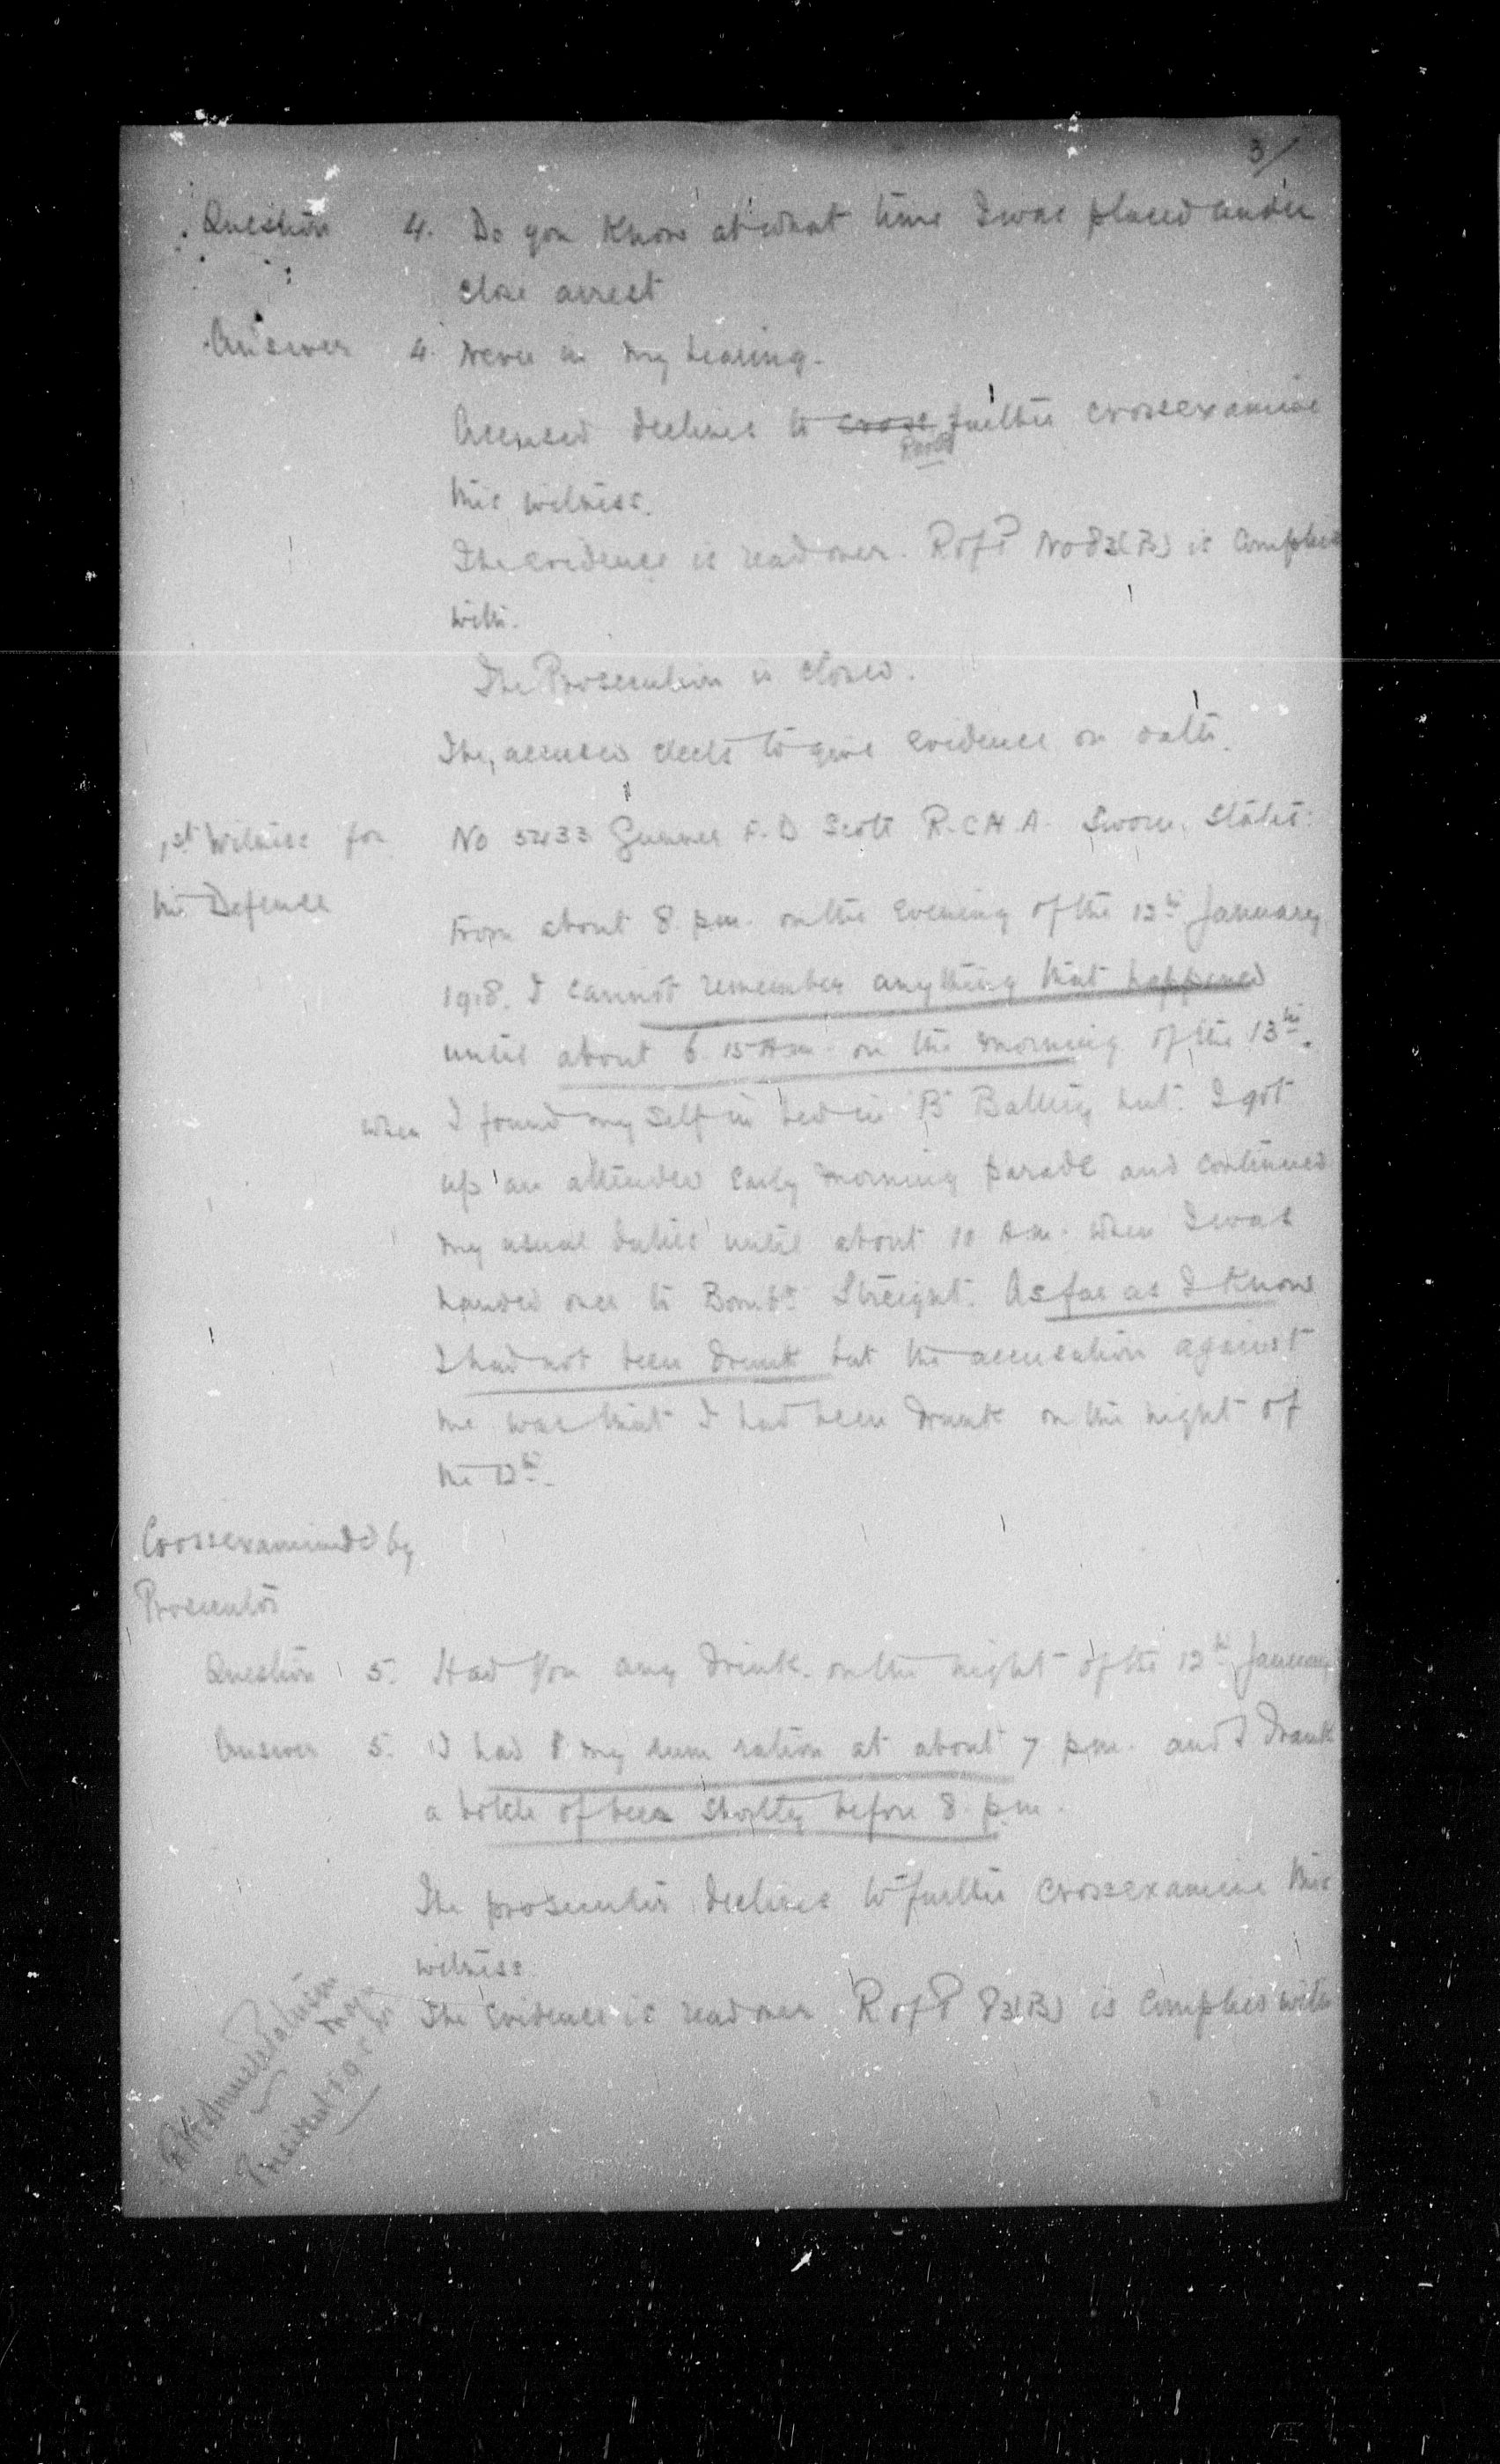 3/
Question 4. Do you know at what time I was placed under
close arrest
Answer 4. Never in my hearing.
Accused declines to cross further crossexamine
this witness.
The evidence is read over. R of P No 83(B) is Complied
with.
The Prosecution is closed.
The accused elects to give evidence on oath.
1st Witness for No 5433 Gunner F. D Scott R.C.H.A. Sworn, States:
the Defence
From about 8 pm. on the evening of the 12th January
1918. I cannot remember anything that happened
until about 6.15 Am. on the morning of the 13th.
when I found my self in bed in "B" Battery hut. I got
up an attended early morning parade and continued
my usual duties until about 10 Am. when I was
handed over to Bombr. Streight. As far as I know
I had not been drunk but the accusation against
me was that I had been drunk on the night of
the 12th.
Crossexamined by
Prosecutor
Question 5. Had you any drink on the night of the 12th January
Answer 5. I had my rum ration at about 7 pm. and I drank
a bottle of beer shortly before 8 pm.
The prosecutor declines to further crossexamine this
witness.
The evidence is read over R of P 83(B) is Complied with
Major
President